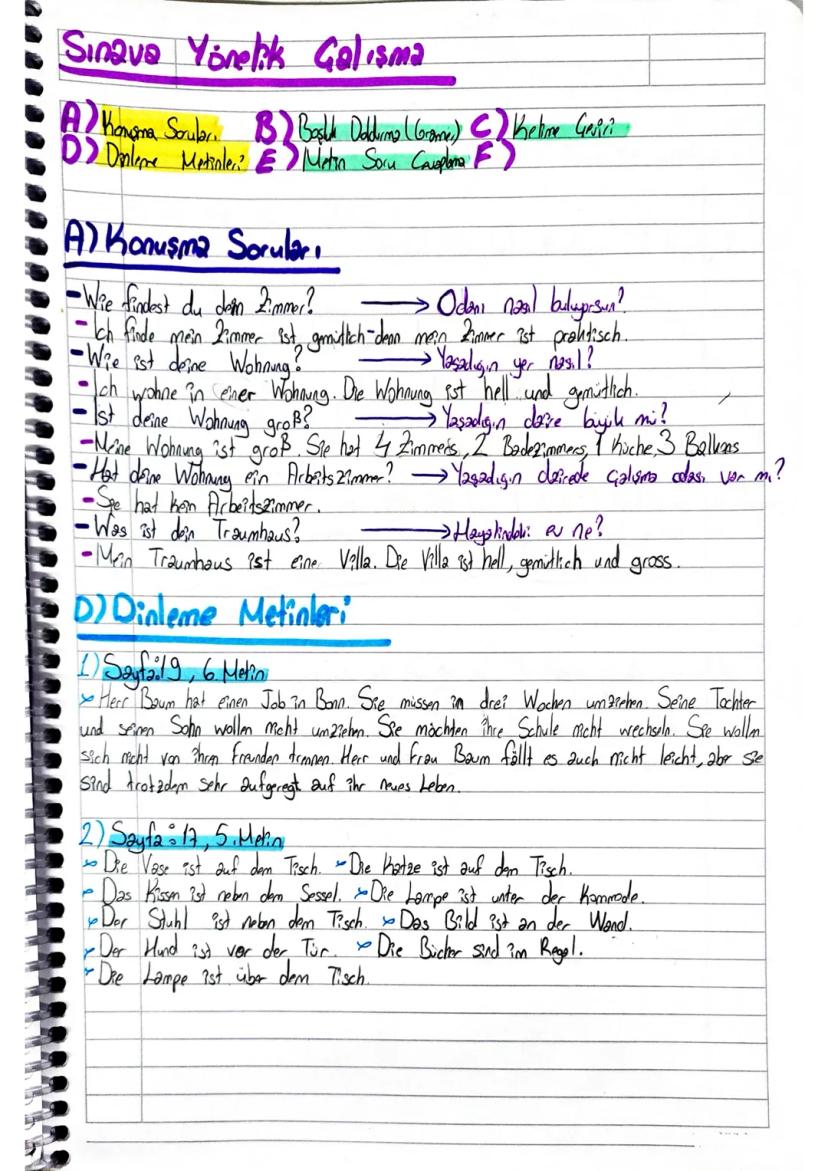 Sınava Yönelik Çalışma
A) Konuşma Soruları B) Boşluk Doldurma (Gramer) C) Kelime Çeviri
D) Dinleme Metinleri E) Metin Soru Cevaplama F)
A) Konuşma Soruları
- Wie findest du dein Zimmer? → Odanı nasıl buluyorsun?
- Ich finde mein Zimmer ist gemütlich denn mein Zimmer ist praktisch.
- Wie ist deine Wohnung? → Yaşadığın yer nasıl?
- Ich wohne in einer Wohnung. Die Wohnung ist hell und gemütlich.
- Ist deine Wohnung groß? → Yaşadığın daire büyük mü?
- Meine Wohnung ist groß. Sie hat 4 Zimmers, 2 Badezimmers, 1 Küche, 3 Balkons
- Hat deine Wohnung ein Arbeitszimmer? → Yaşadığın dairede çalışma odası var mı?
- Sie hat kein Arbeitszimmer.
- Was ist dein Traumhaus? → Hayalindeki ev ne?
- Mein Traumhaus ist eine Villa. Die Villa ist hell, gemütlich und gross.
D) Dinleme Metinleri
1) Sayfa:19, 6. Metin
Herr Baum hat einen Job in Bonn. Sie müssen in drei Wochen umziehen. Seine Tochter
und seinen Sohn wollen nicht umziehen. Sie möchten ihre Schule nicht wechseln. Sie wollen
sich nicht von ihren Freunden trennen. Herr und Frau Baum fällt es auch nicht leicht, aber sie
sind trotzdem sehr aufgeregt auf ihr neues Leben.
2) Sayfa:17, 5. Metin
Die Vase ist auf dem Tisch. Die Katze ist auf dem Tisch.
Das Kissen ist neben dem Sessel. Die Lampe ist unter der Kommode.
Der Stuhl ist neben dem Tisch. Das Bild ist an der Wand.
Der Hund ist vor der Tür. Die Bücher sind im Regal.
Die Lampe ist über dem Tisch.